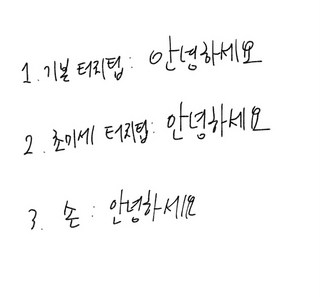 1. 기본 터치팁 : 안녕하세요
2. 초미세 터치팁 : 안녕하세요
3. 손 : 안녕하세요